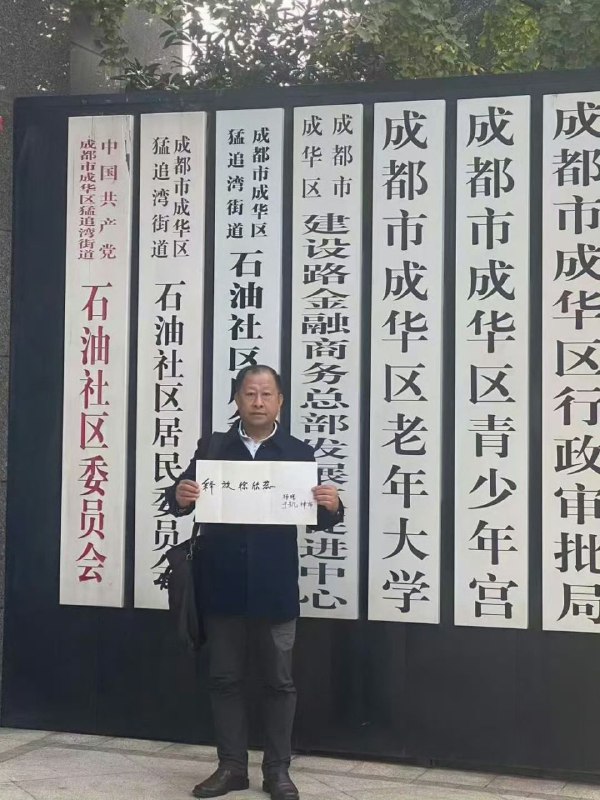 中国共产党
成都市成华区猛追湾街道
石油社区委员会
成都市成华区
猛追湾街道
石油社区居民委员会
成都市成华区
猛追湾街道
石油社区
成都市
成华区
建设路金融商务总部发展促进中心
成都市成华区老年大学
成都市成华区青少年宫
成都市成华区行政审批局
释放徐